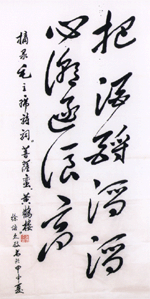 把酒酹滔滔
心潮逐浪高
摘录毛主席诗词菩薩蛮黄鹤楼